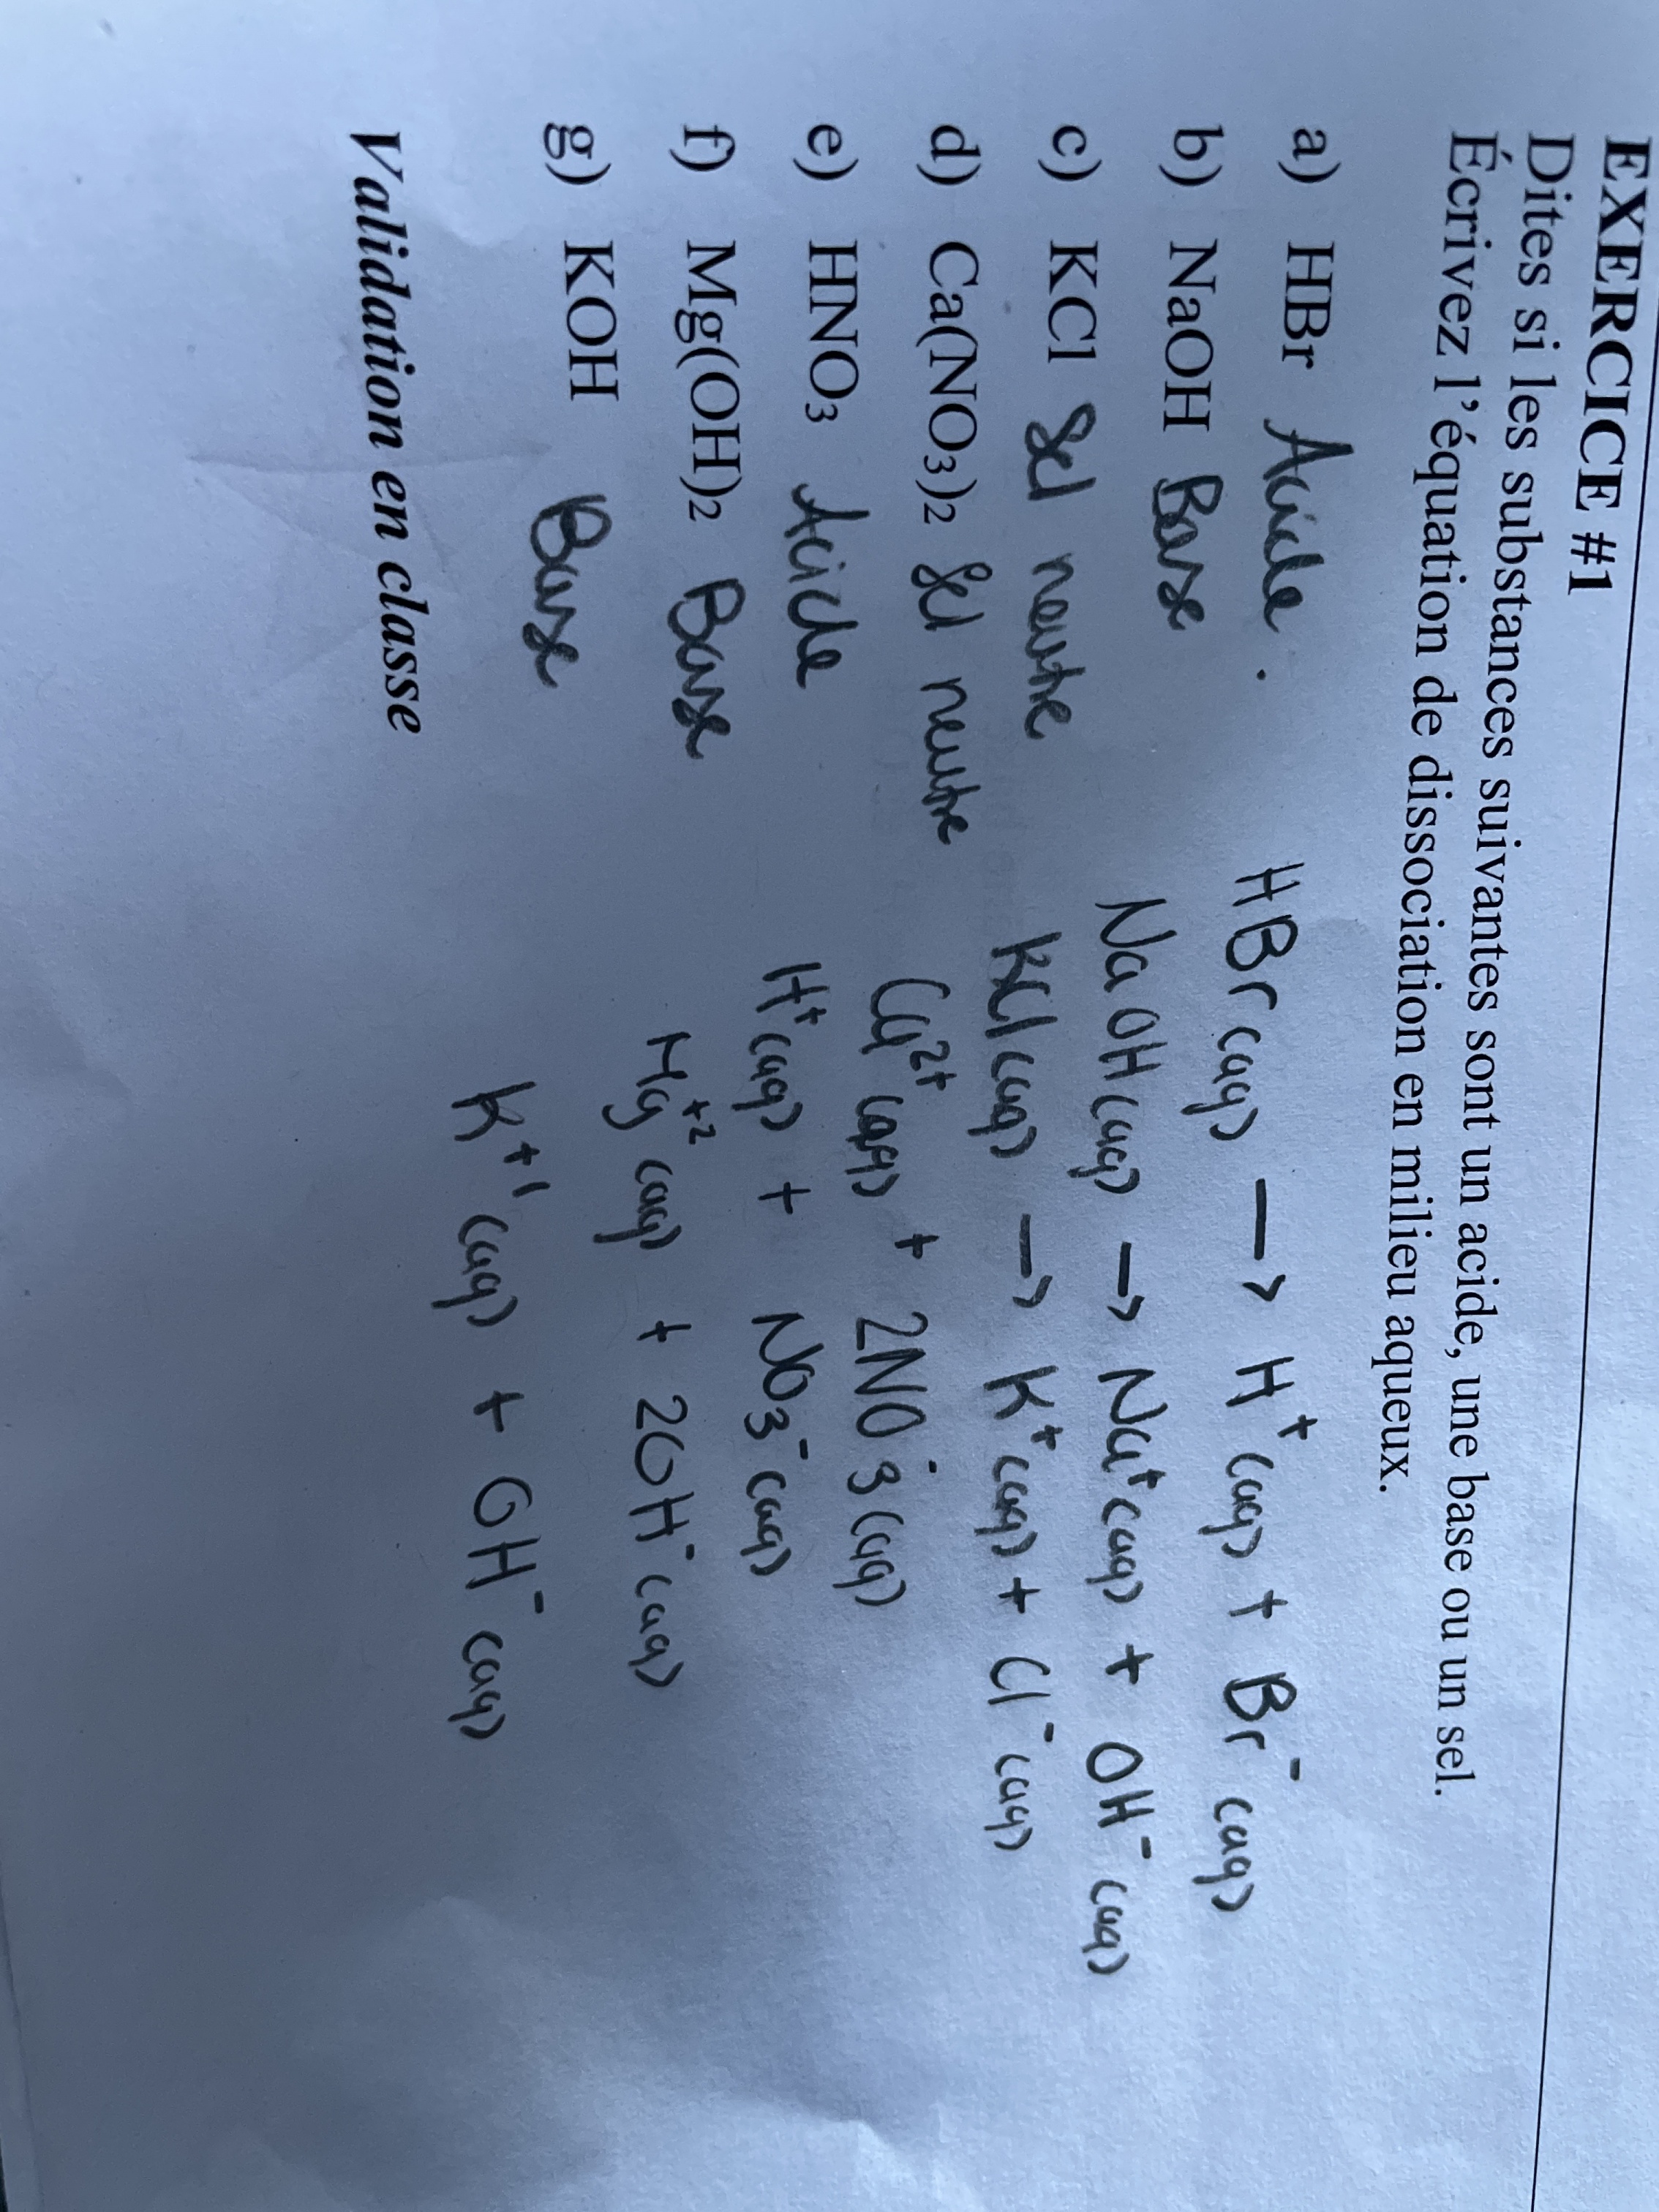 EXERCICE #1
Dites si les substances suivantes sont un acide, une base ou un sel.
Écrivez l'équation de dissociation en milieu aqueux.
a) HBr Acide. HBr(aq) → H⁺(aq) + Br⁻(aq)
b) NaOH Base NaOH(aq) → Na⁺(aq) + OH⁻(aq)
c) KCl Sel neutre KCl(aq) → K⁺(aq) + Cl⁻(aq)
d) Ca(NO₃)₂ Sel neutre Ca²⁺(aq) + 2NO⁻₃(aq)
e) HNO₃ Acide H⁺(aq) + NO₃⁻(aq)
f) Mg(OH)₂ Base Mg⁺²(aq) + 2OH⁻(aq)
g) KOH Base K⁺¹(aq) + OH⁻(aq)
Validation en classe